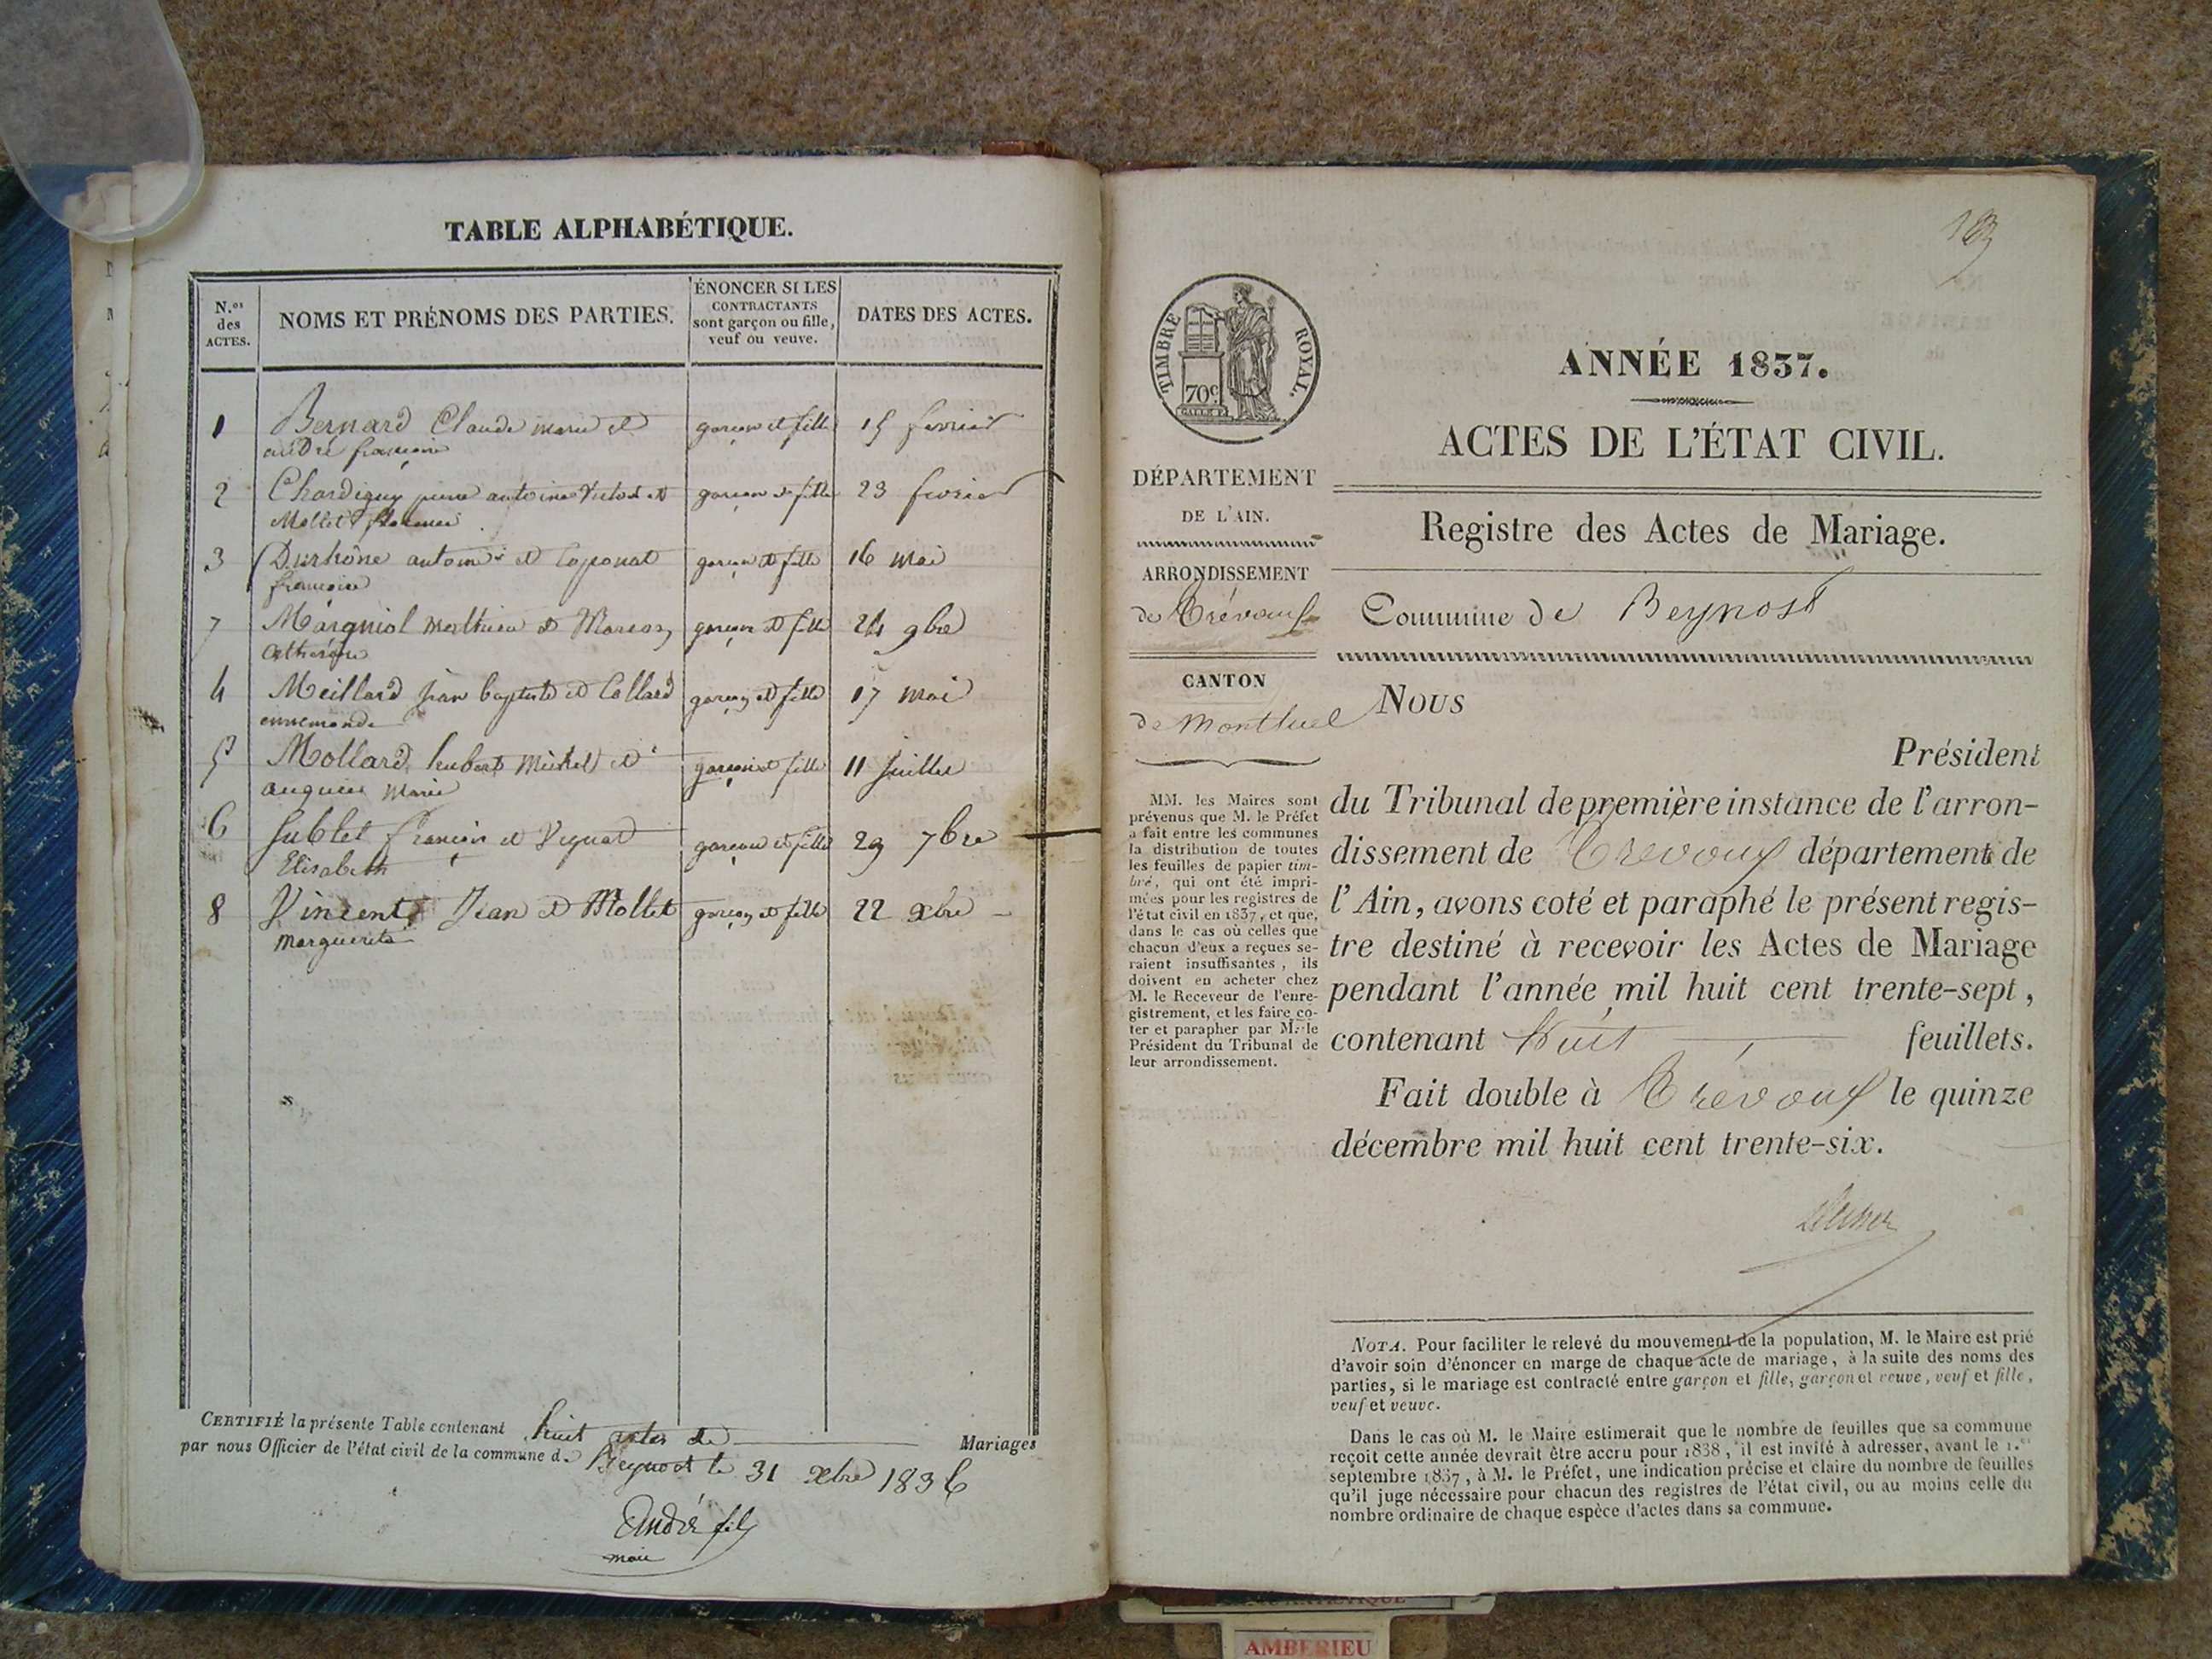 TABLE ALPHABÉTIQUE.
N.os des ACTES.
NOMS ET PRÉNOMS DES PARTIES.
ÉNONCER SI LES CONTRACTANTS sont garçon ou fille, veuf ou veuve.
DATES DES ACTES.
1 Bernard Claude marie et garçon et fille 15 fevrier
andré françoise
2 Chardigny pierre antoine Victor et garçon et fille 23 fevrier
Mollet
3 Durhône antoine et Coponat garçon et fille 16 mai
françoise
7 Margniol Mathieu et garçon et fille 24 9bre
Catherine
4 Meillard jean baptiste et Collard garçon et fille 17 mai
ennemonde
5 Mollard hubert Michel et garçon et fille 11 Juillet
Marie
6 Sublet françois et garçon et fille 29 7bre
Elisabeth
8 Vincent Jean et Mollet garçon et fille 22 xbre
Marguerite
CERTIFIÉ la présente Table contenant huit actes de Mariages
par nous Officier de l'état civil de la commune de Beynost le 31 xbre 1836
André fils
maire
183
TIMBRE ROYAL.
70c.
ANNÉE 1837.
ACTES DE L'ÉTAT CIVIL.
Registre des Actes de Mariage.
Commune de Beynost
DÉPARTEMENT
DE L'AIN.
ARRONDISSEMENT
de Trévoux
CANTON
de Montluel
MM. les Maires sont
prévenus que M. le Préfet
a fait entre les communes
la distribution de toutes
les feuilles de papier tim-
bré, qui ont été impri-
mées pour les registres de
l'état civil en 1837, et que,
dans le cas où celles que
chacun d'eux a reçues se-
raient insuffisantes, ils
doivent en acheter chez
M. le Receveur de l'enre-
gistrement, et les faire co-
ter et parapher par M. le
Président du Tribunal de
leur arrondissement.
NOUS
Président
du Tribunal de première instance de l'arron-
dissement de Trevoux département de
l'Ain, avons coté et paraphé le présent regis-
tre destiné à recevoir les Actes de Mariage
pendant l'année mil huit cent trente-sept,
contenant huit feuillets.
Fait double à Trevoux le quinze
décembre mil huit cent trente-six.
NOTA. Pour faciliter le relevé du mouvement de la population, M. le Maire est prié
d'avoir soin d'énoncer en marge de chaque acte de mariage, à la suite des noms des
parties, si le mariage est contracté entre garçon et fille, garçon et veuve, veuf et fille,
veuf et veuve.
Dans le cas où M. le Maire estimerait que le nombre de feuilles que sa commune
reçoit cette année devrait être accru pour 1838, il est invité à adresser, avant le 1.er
septembre 1837, à M. le Préfet, une indication précise et claire du nombre de feuilles
qu'il juge nécessaire pour chacun des registres de l'état civil, ou au moins celle du
nombre ordinaire de chaque espèce d'actes dans sa commune.
AMBERIEU